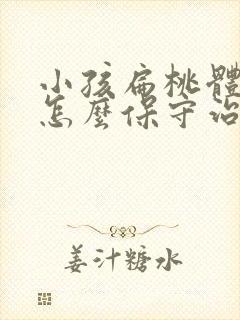 小孩扁桃體
怎麼保守治
姜汁糖水